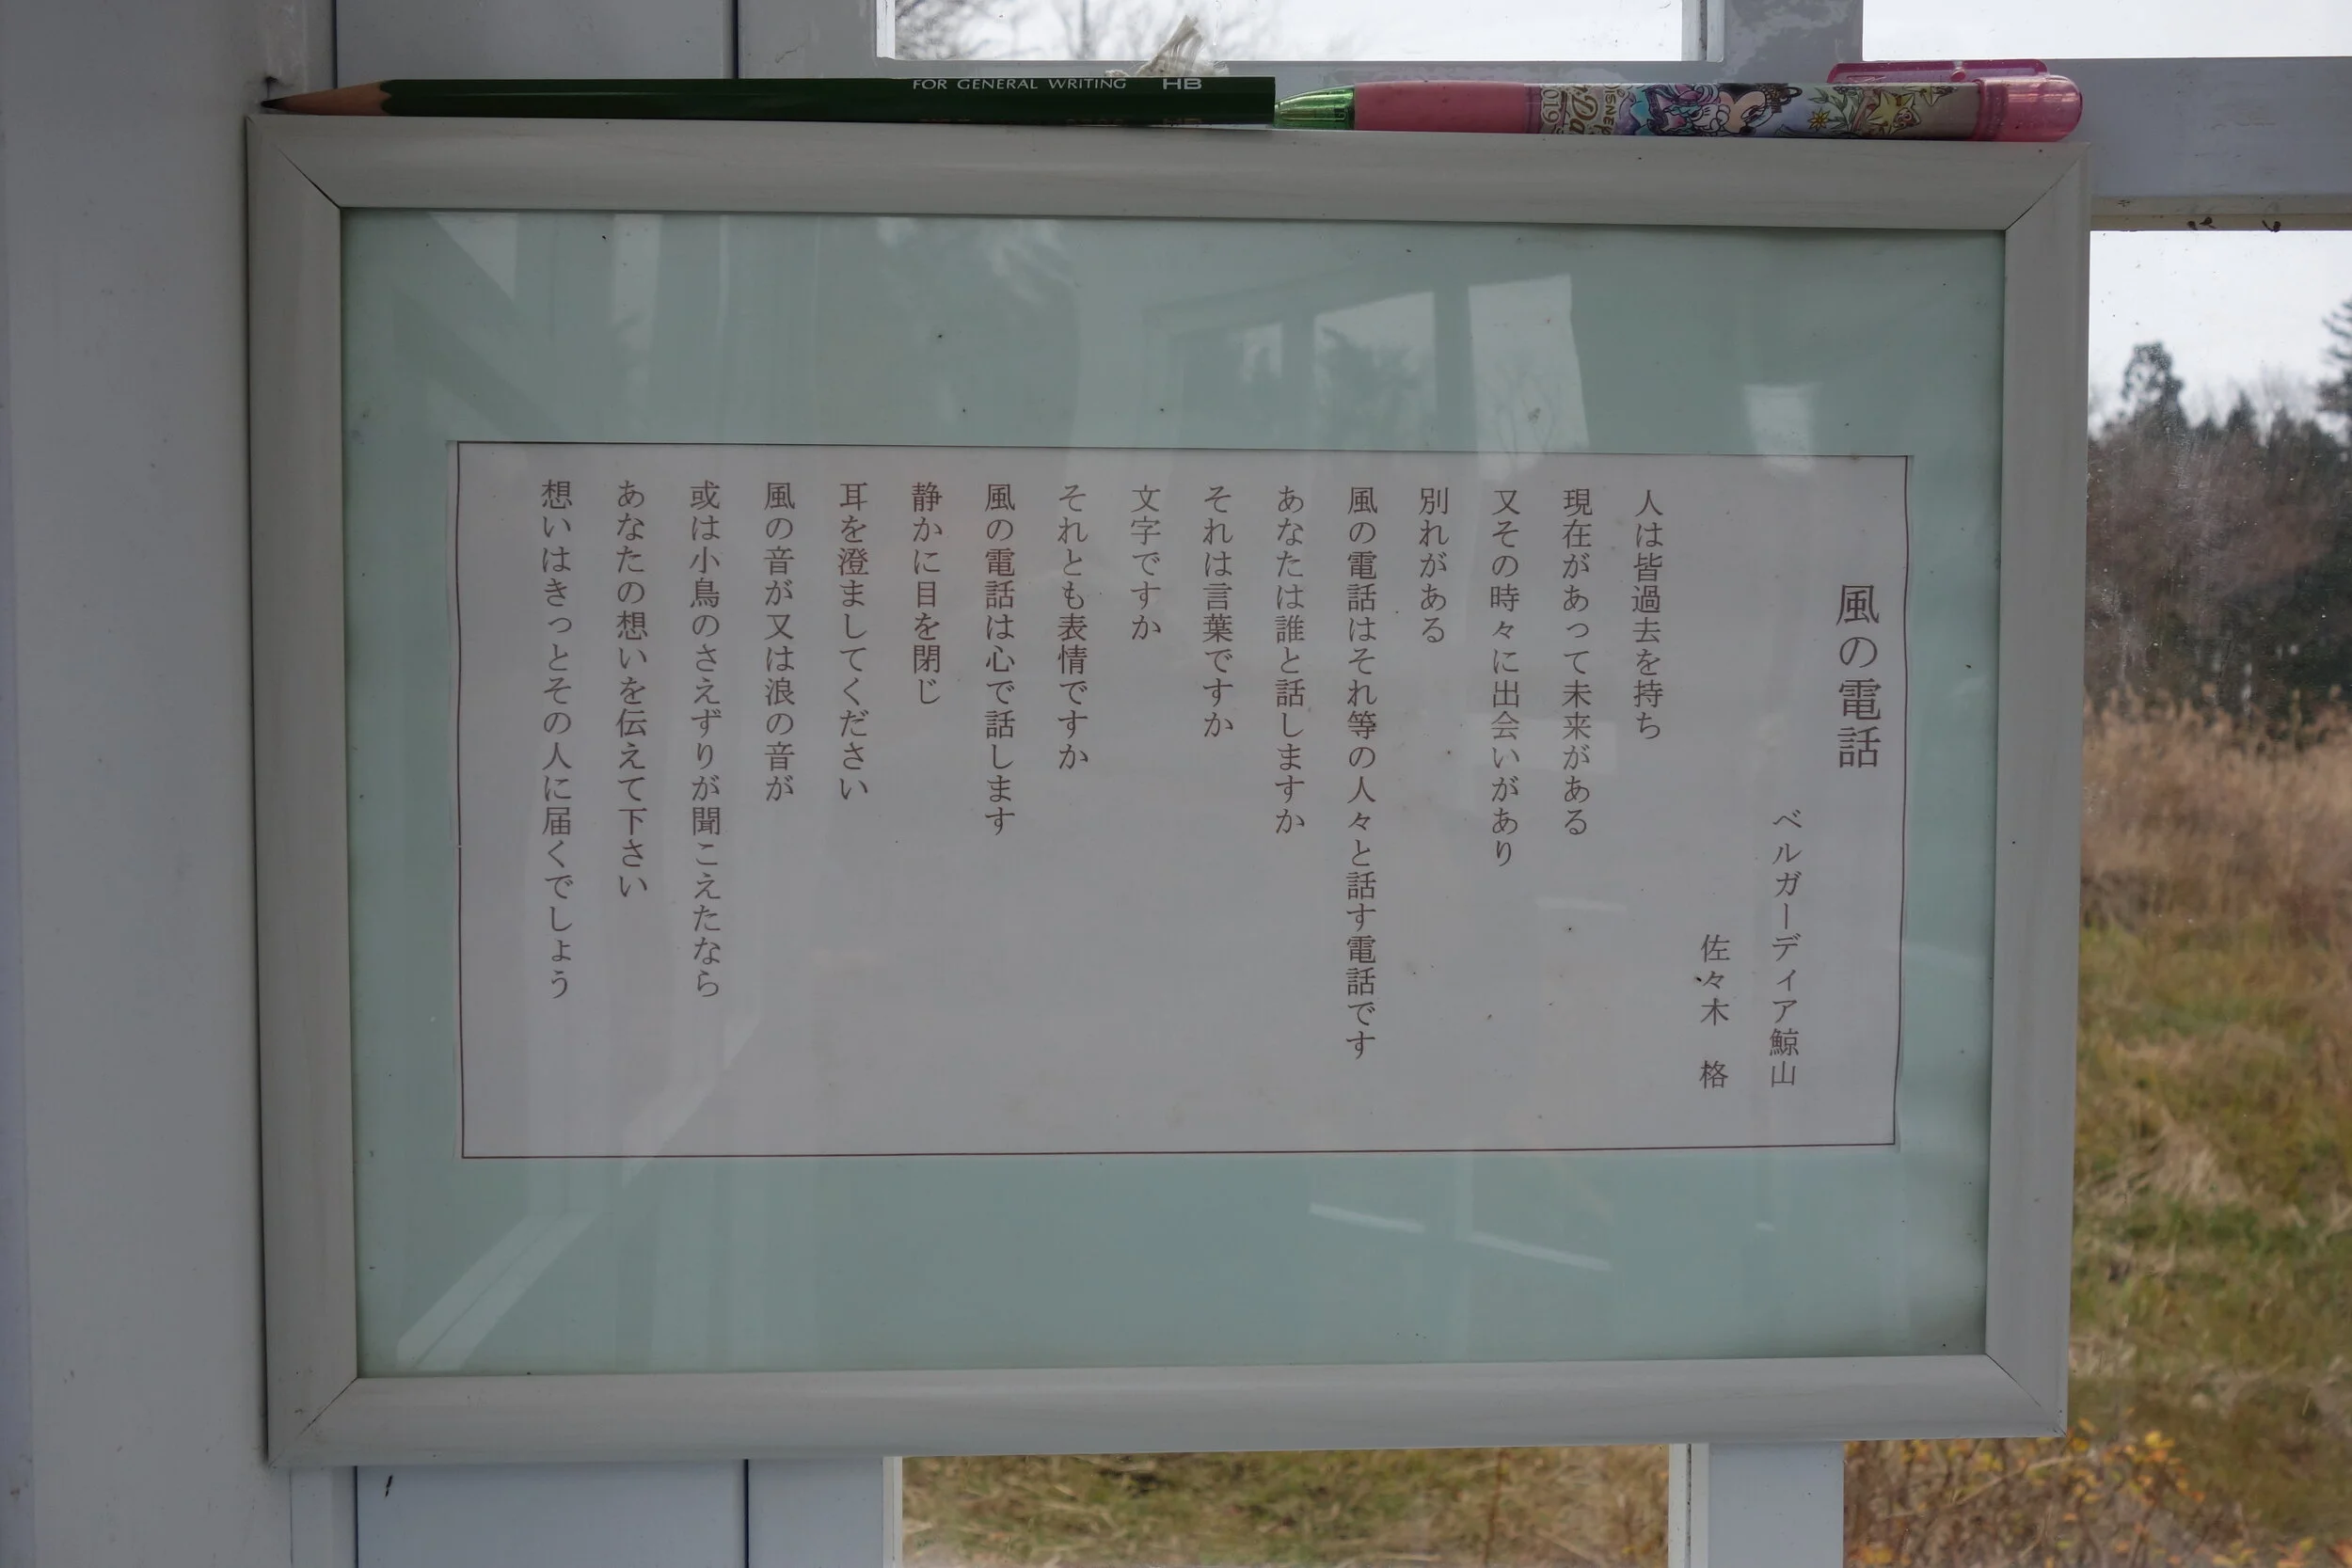 FOR GENERAL WRITING HB
風の電話
ベルガーディア鯨山
佐々木 格
人は皆過去を持ち
現在があって未来がある
又その時々に出会いがあり
別れがある
風の電話はそれ等の人々と話す電話です
あなたは誰と話しますか
それは言葉ですか
文字ですか
それとも表情ですか
風の電話は心で話します
静かに目を閉じ
耳を澄ましてください
風の音が又は浪の音が
或は小鳥のさえずりが聞こえたなら
あなたの想いを伝えて下さい
想いはきっとその人に届くでしょう